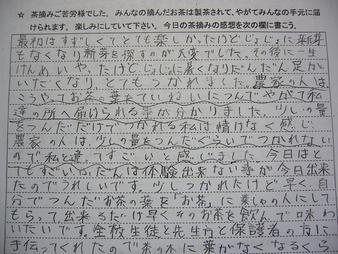 ☆ 茶摘みご苦労様でした。みんなの摘んだお茶は製茶されて、やがてみんなの手元に届
けられます。楽しみにしていて下さい。今日の茶摘みの感想を次の欄に書こう。
最初はすずしくてとても楽しかったけどじょじょに新芽
もなくなり新芽を探すのが大変でした。その後に一生
けんめいやったけどじょじょに暑くなりだんだん足がか
いたくなりとてもつかれました。農家の人は、
こうやってお茶の葉をていねいにつんで、やがて私
達の所へ届けられる事が分かりました。少しの量
をつんだだけでつかれる私は情けなく感じ
農家の人は、少しの量をつんだぐらいでつかれない
ので私と違ってすごいと感じました。今日はと
てもすごいだんは体験出来ない事が今日出来
たのでうれしいです。少しつかれたけど早く、自
分でつんだお茶の葉を「お茶」に業しゃの人にして
もらって出来るだけ早くそのお茶を飲んで味わ
いたいです。全校生徒と先生方と保護者の方に
手伝ってくれたので茶の木に葉がなくなるくら